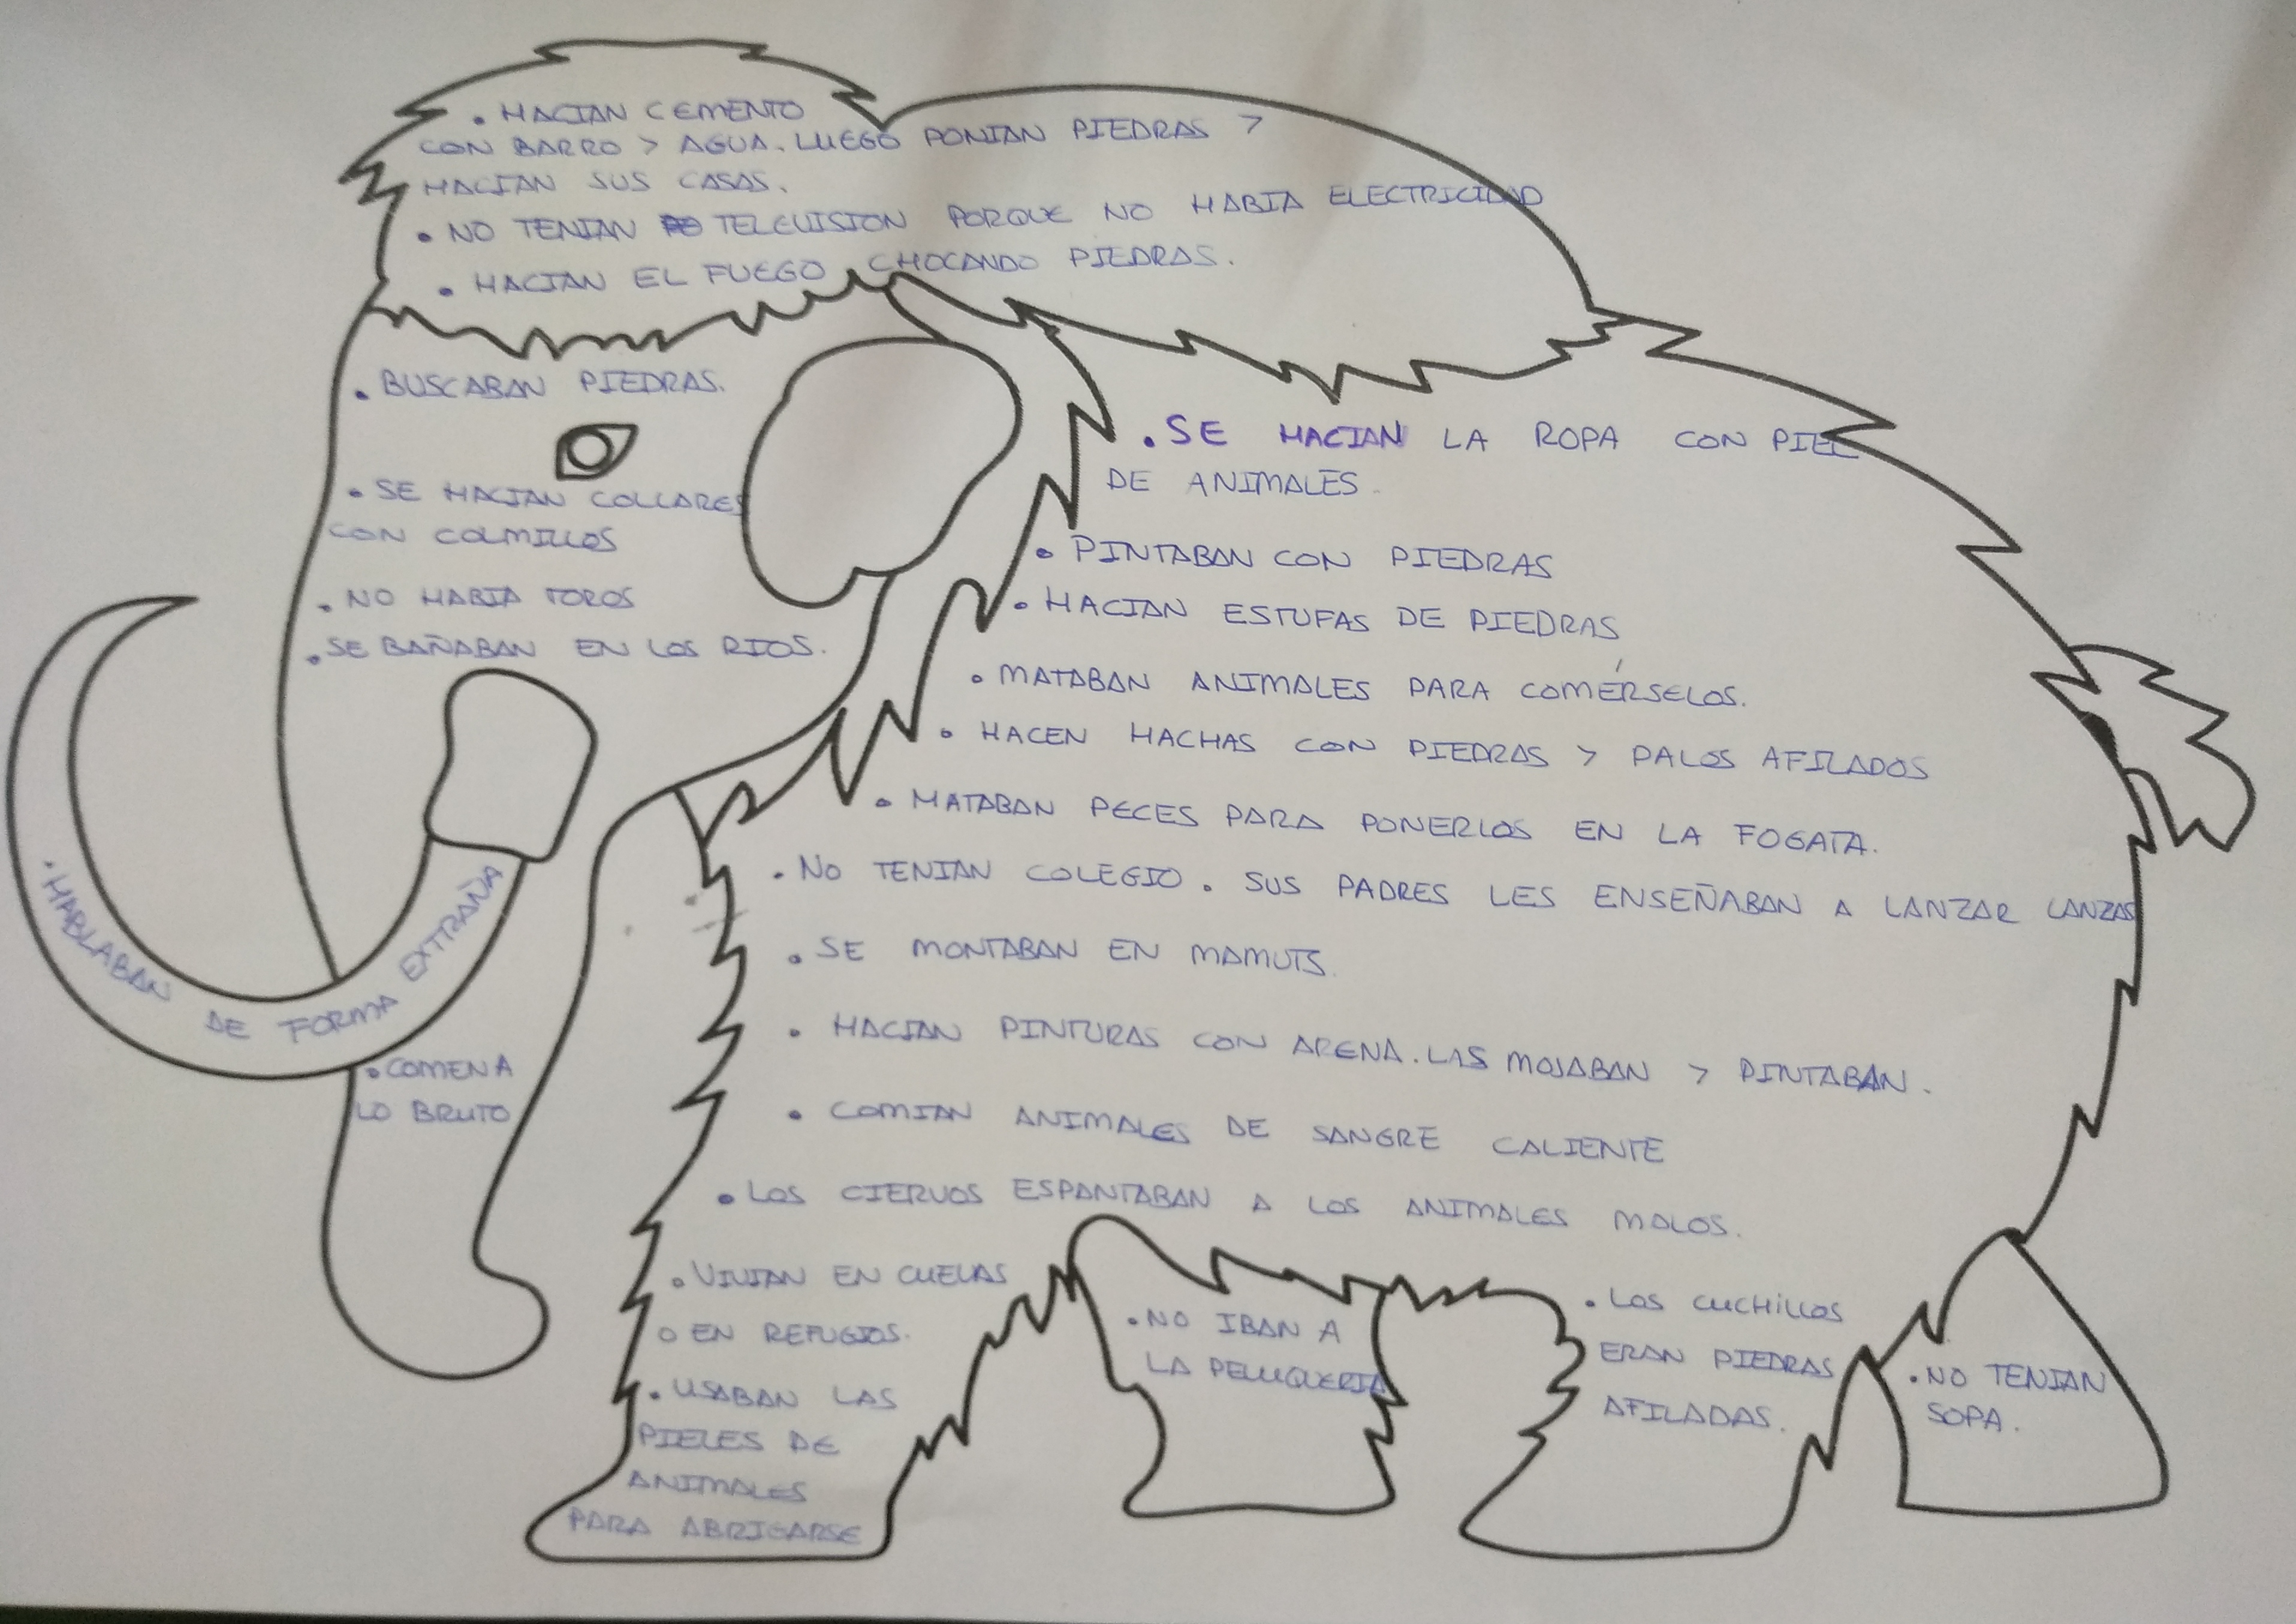 • HACIAN CEMENTO
CON BARRO Y AGUA. LUEGO PONIAN PIEDRAS Y
HACIAN SUS CASAS.
• NO TENIAN TELEVISION PORQUE NO HABIA ELECTRICIDAD
• HACIAN EL FUEGO CHOCANDO PIEDRAS.
• BUSCABAN PIEDRAS.
• SE HACIAN COLLARES
CON COLMILLOS
• NO HABIA TOROS
• SE BAÑABAN EN LOS RIOS.
• HABLABAN DE FORMA EXTRAÑA
• COMEN A
LO BRUTO
• SE HACIAN LA ROPA CON PIEL
DE ANIMALES.
• PINTABAN CON PIEDRAS
• HACIAN ESTUFAS DE PIEDRAS
• MATABAN ANIMALES PARA COMÉRSELOS.
• HACEN HACHAS CON PIEDRAS Y PALOS AFILADOS
• MATABAN PECES PARA PONERLOS EN LA FOGATA.
• NO TENIAN COLEGIO. SUS PADRES LES ENSEÑABAN A LANZAR LANZAS
• SE MONTABAN EN MAMUTS.
• HACIAN PINTURAS CON ARENA. LAS MOJABAN Y PINTABAN.
• COMIAN ANIMALES DE SANGRE CALIENTE
• LOS CIERVOS ESPANTABAN A LOS ANIMALES MALOS.
• VIVIAN EN CUEVAS
O EN REFUGIOS.
• USABAN LAS
PIELES DE
ANIMALES
PARA ABRIGARSE
• NO IBAN A
LA PELUQUERIA
• LOS CUCHILLOS
ERAN PIEDRAS
AFILADAS.
• NO TENIAN
SOPA.